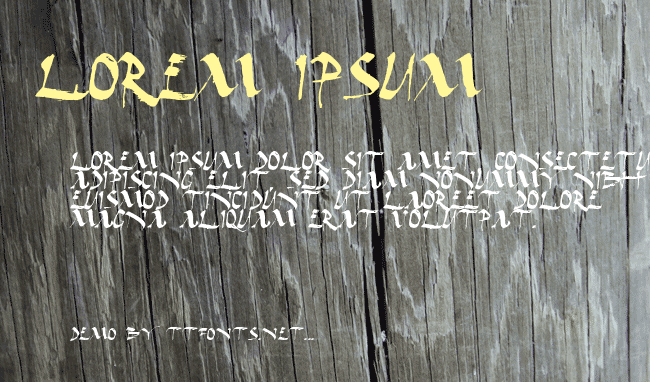 LOREM IPSUM
LOREM IPSUM DOLOR SIT AMET, CONSECTETU
ADIPISCING ELIT, SED DIAM NONUMMY NIBH
EUISMOD TINCIDUNT UT LAOREET DOLORE
MAGNA ALIQUAM ERAT VOLUTPAT.
DEMO BY TTFONTS.NET...